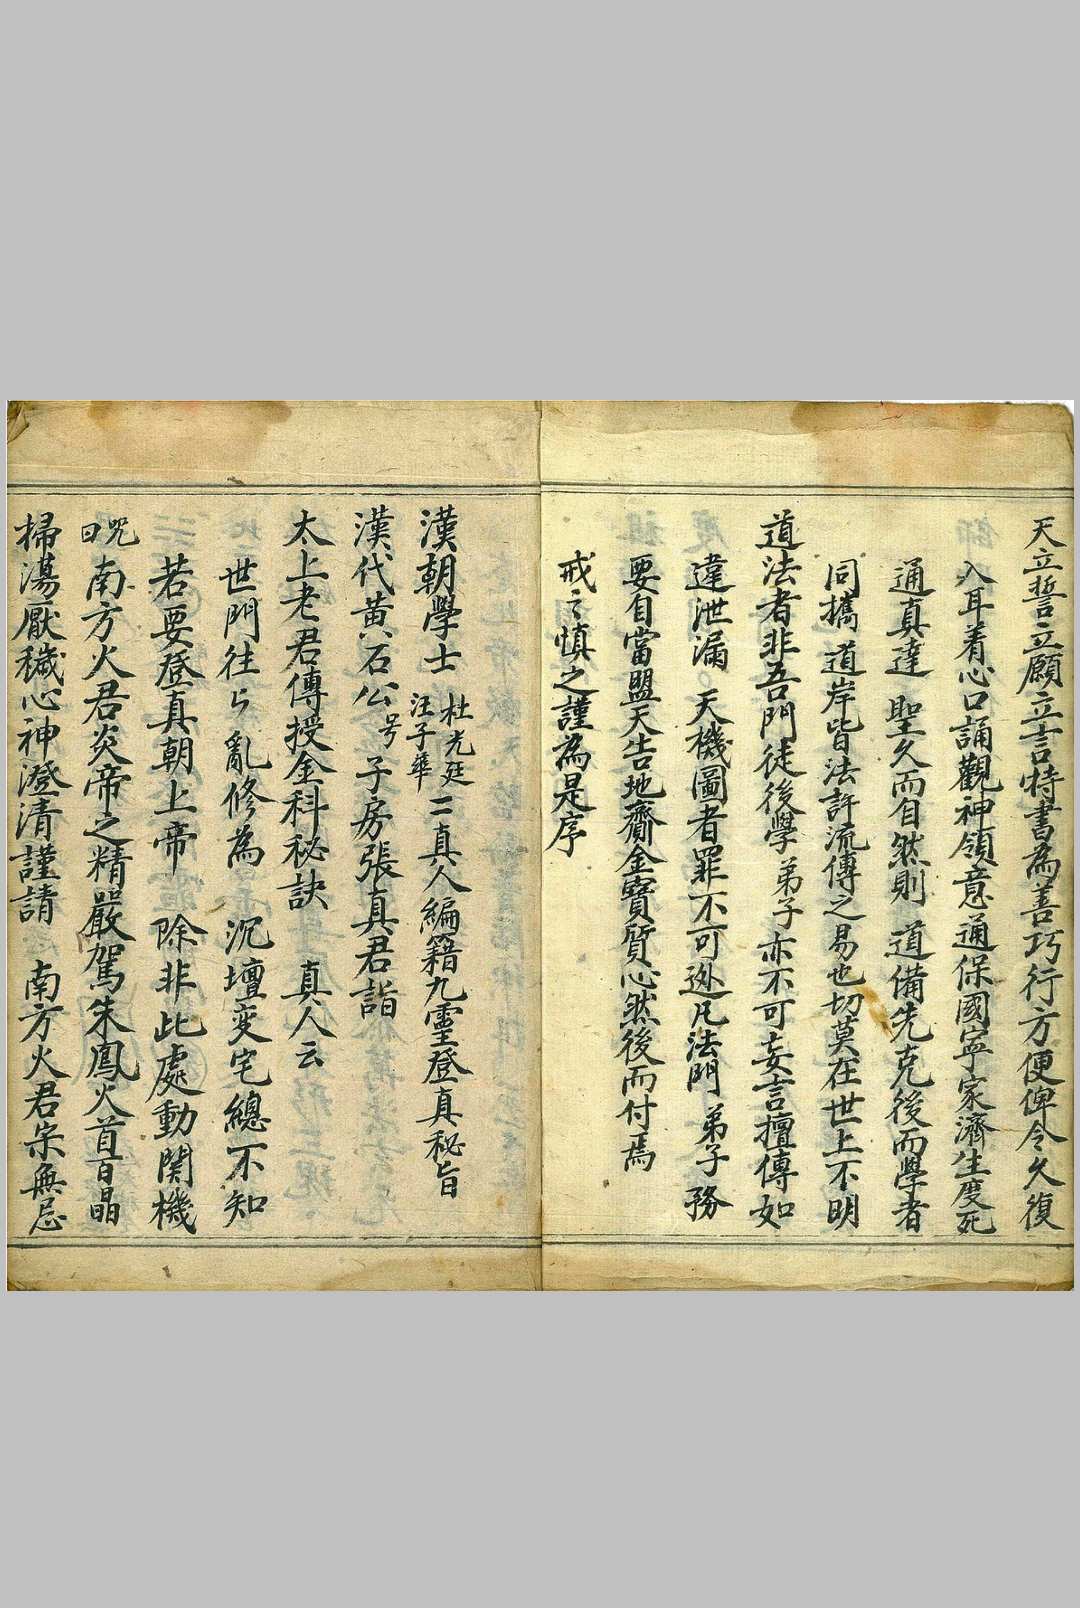 天立誓立願立言特書為善巧行方便俾令久復
入耳着心口誦觀神領意通保國寧家濟生度死
通真達 聖久而自然則 道備先克後而學者
同攜 道岸皆法許流傳之易也切莫在世上不明
道法者非吾門徒後學弟子亦不可妄言擅傳如
違泄漏 天機圖者罪不可逊凡法門 弟子務
要自當盟天告地齎金寶質心然後而付焉
戒之慎之謹為是序
漢朝學士 杜光廷 汪子華 二真人編籍九靈登真秘旨
漢代黄石公号 子房張真君詣
太上老君傳授金科秘訣 真人云
世門往々亂修為 沉壇变宅總不知
若要登真朝上帝 除非此處動関機
咒曰 南方火君炎帝之精嚴駕朱鳳火首百晶
掃蕩厭穢心神澄清謹請 南方火君宋無忌